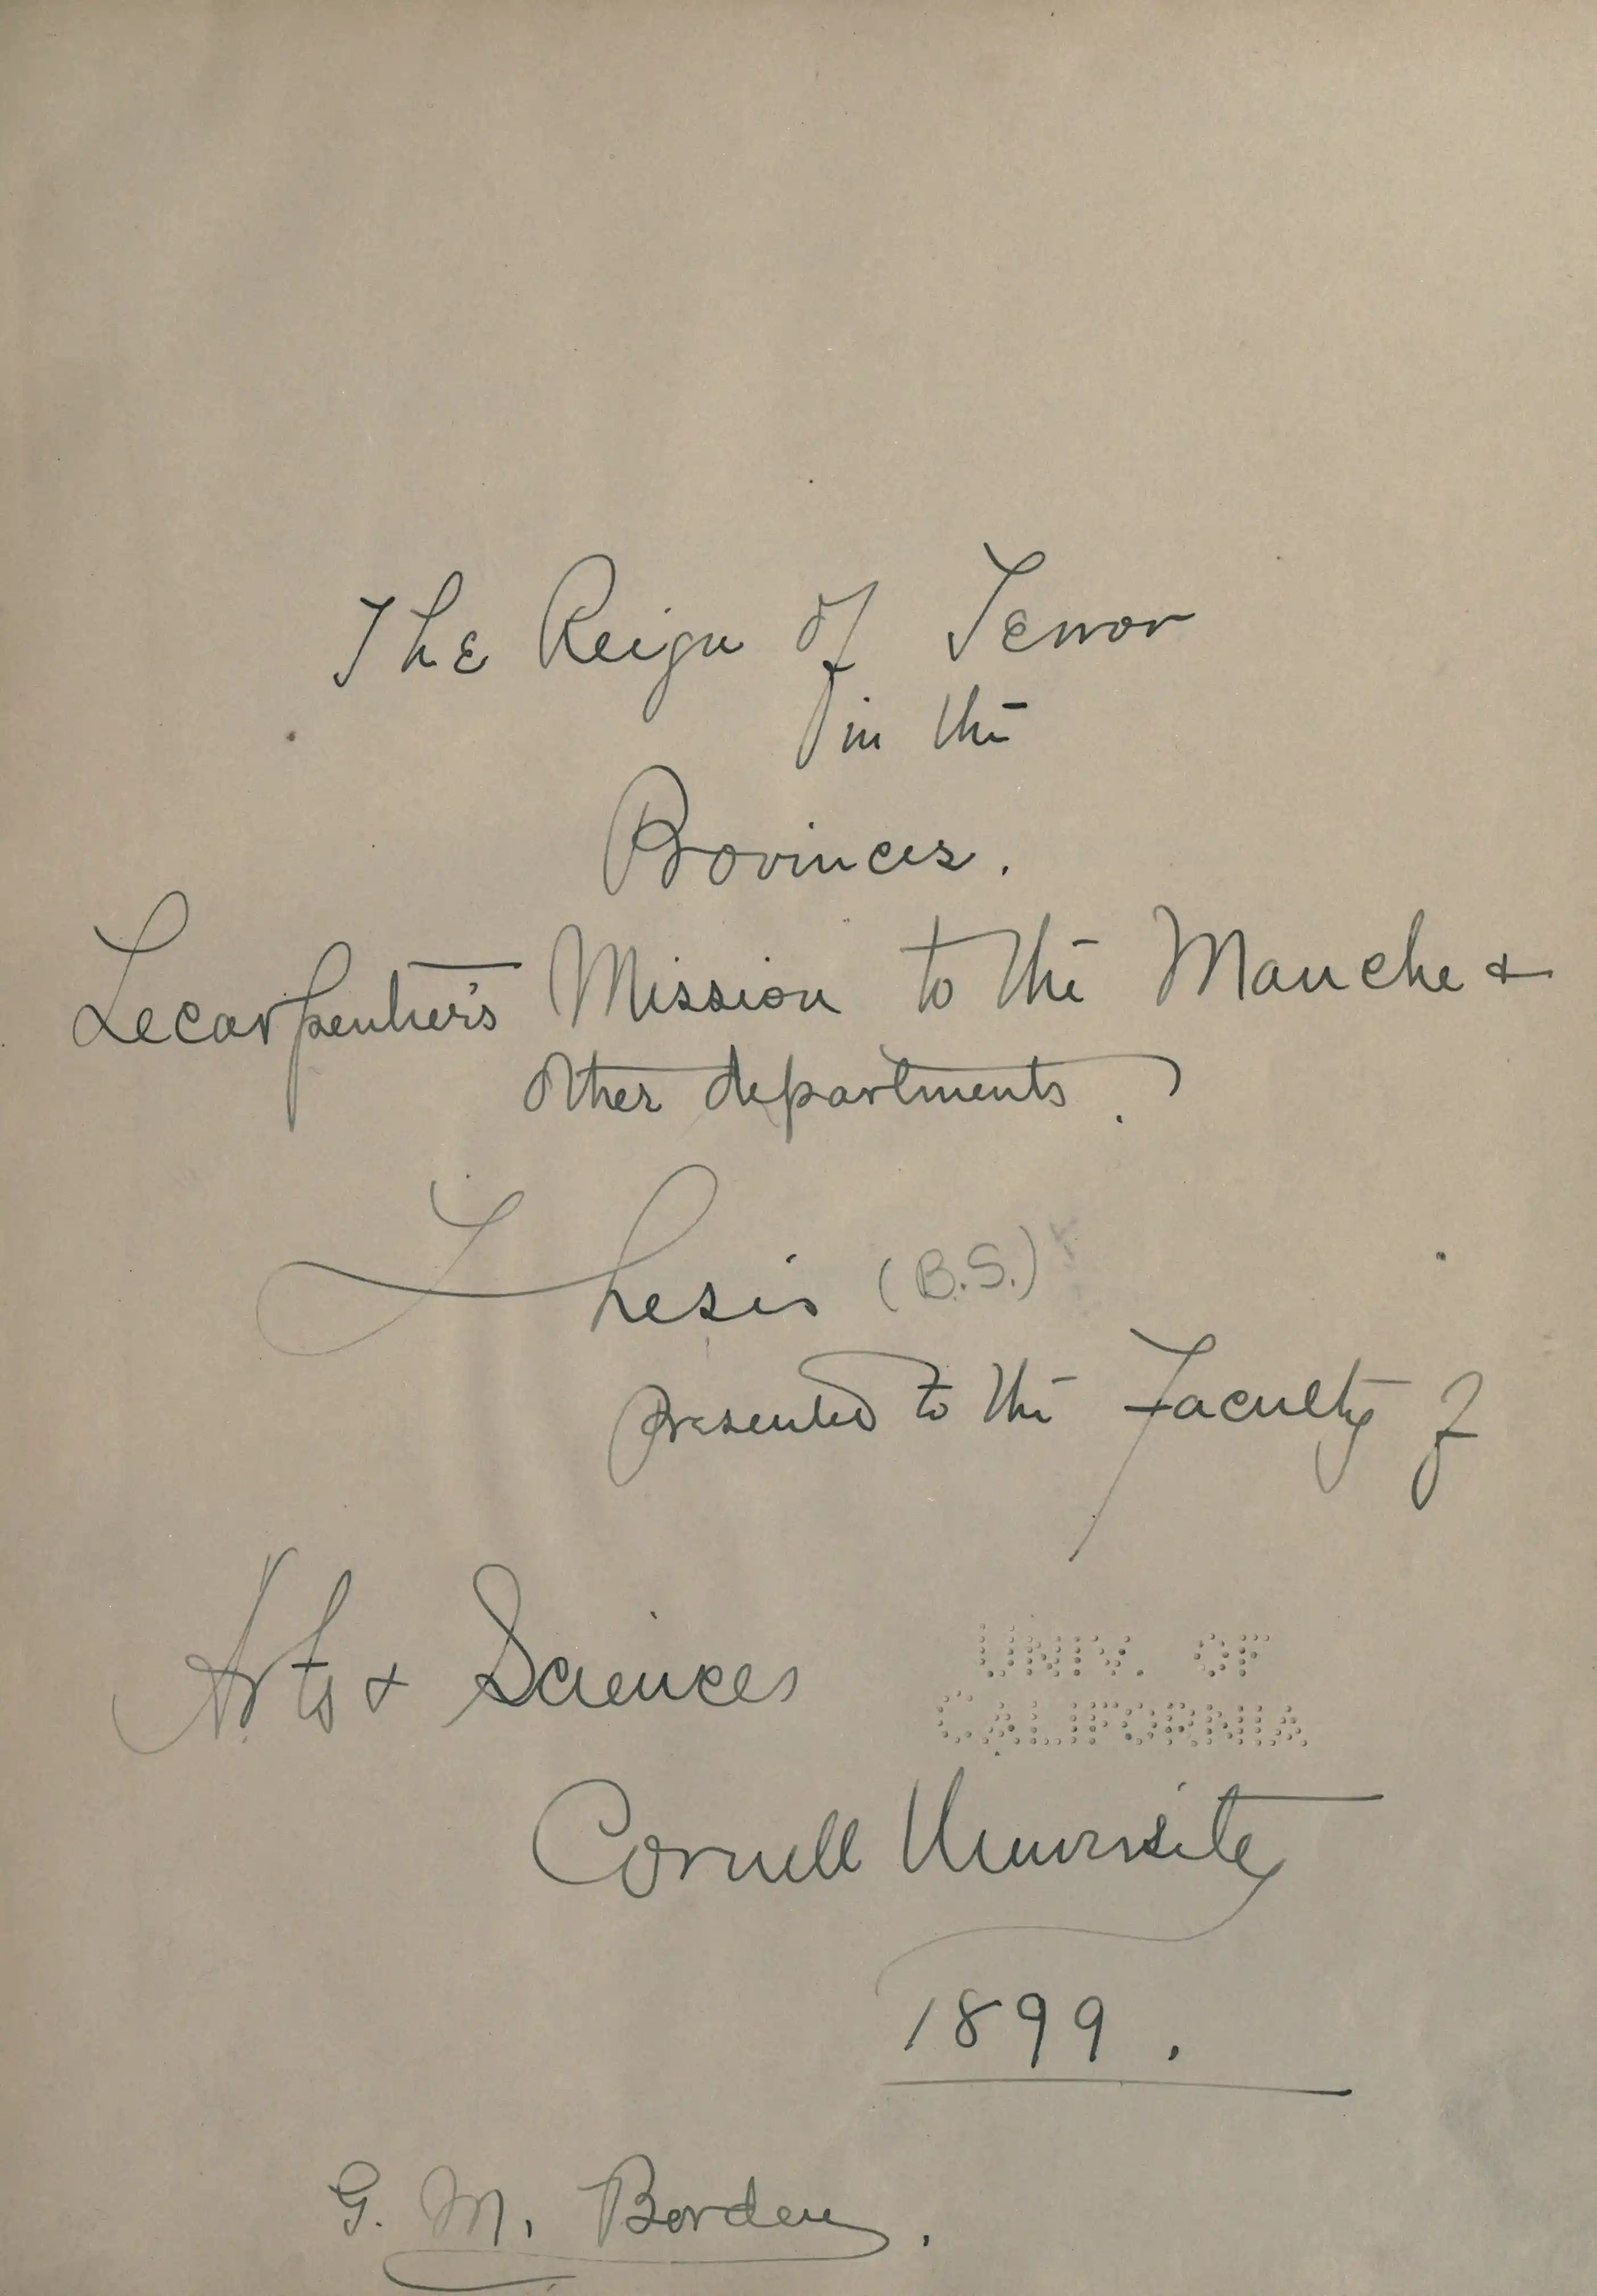 The Reign of Terror
in the
Provinces.
Lecarpentier's Mission to the Manche &
other departments.
Thesis (B.S.)
presented to the Faculty of
Arts & Sciences
UNIV. OF
CALIFORNIA
Cornell University
1899.
G. M. Borden.